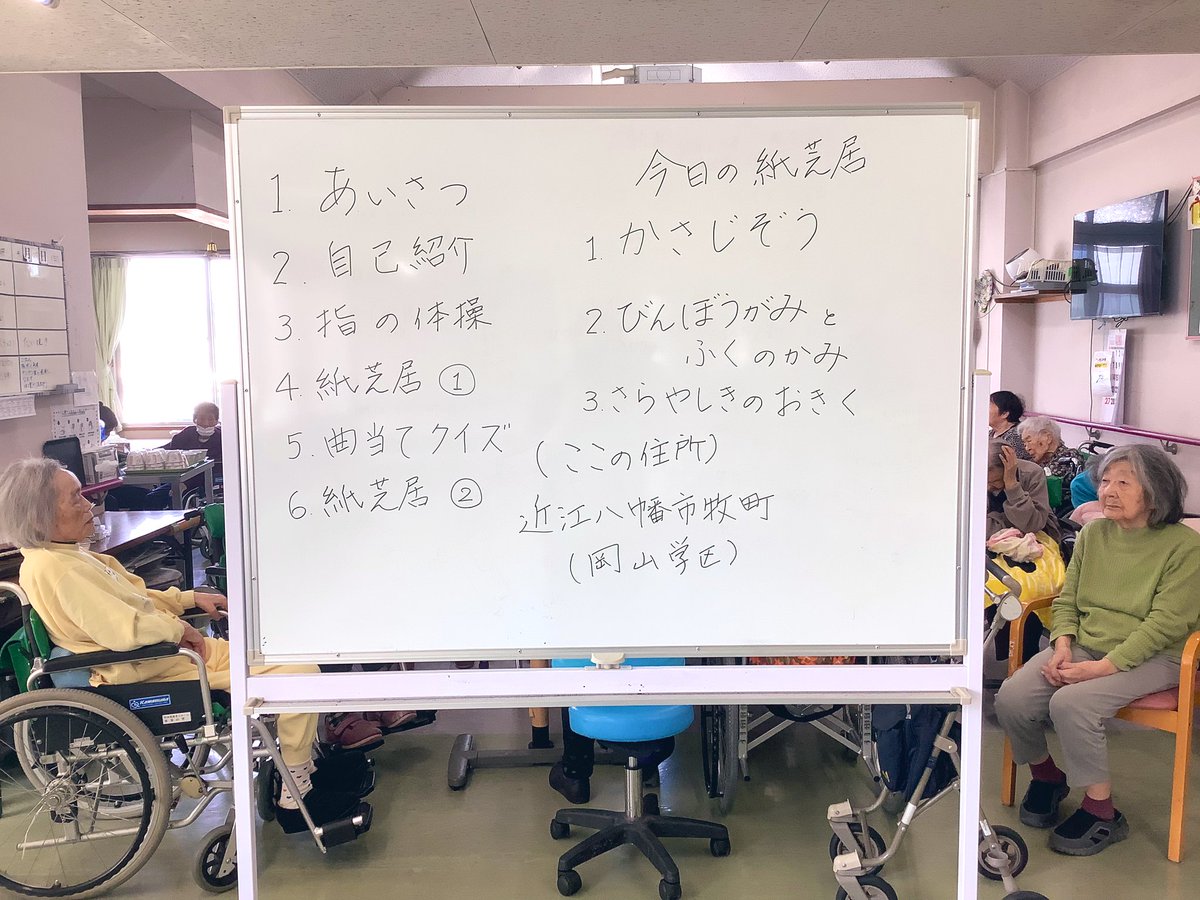 1. あいさつ
2. 自己紹介
3. 指の体操
4. 紙芝居 ①
5. 曲当てクイズ
6. 紙芝居 ②
今日の紙芝居
1. かさじぞう
2. びんぼうがみと
ふくのかみ
3. さらやしきのおきく
(ここの住所)
近江八幡市牧町
(岡山学区)